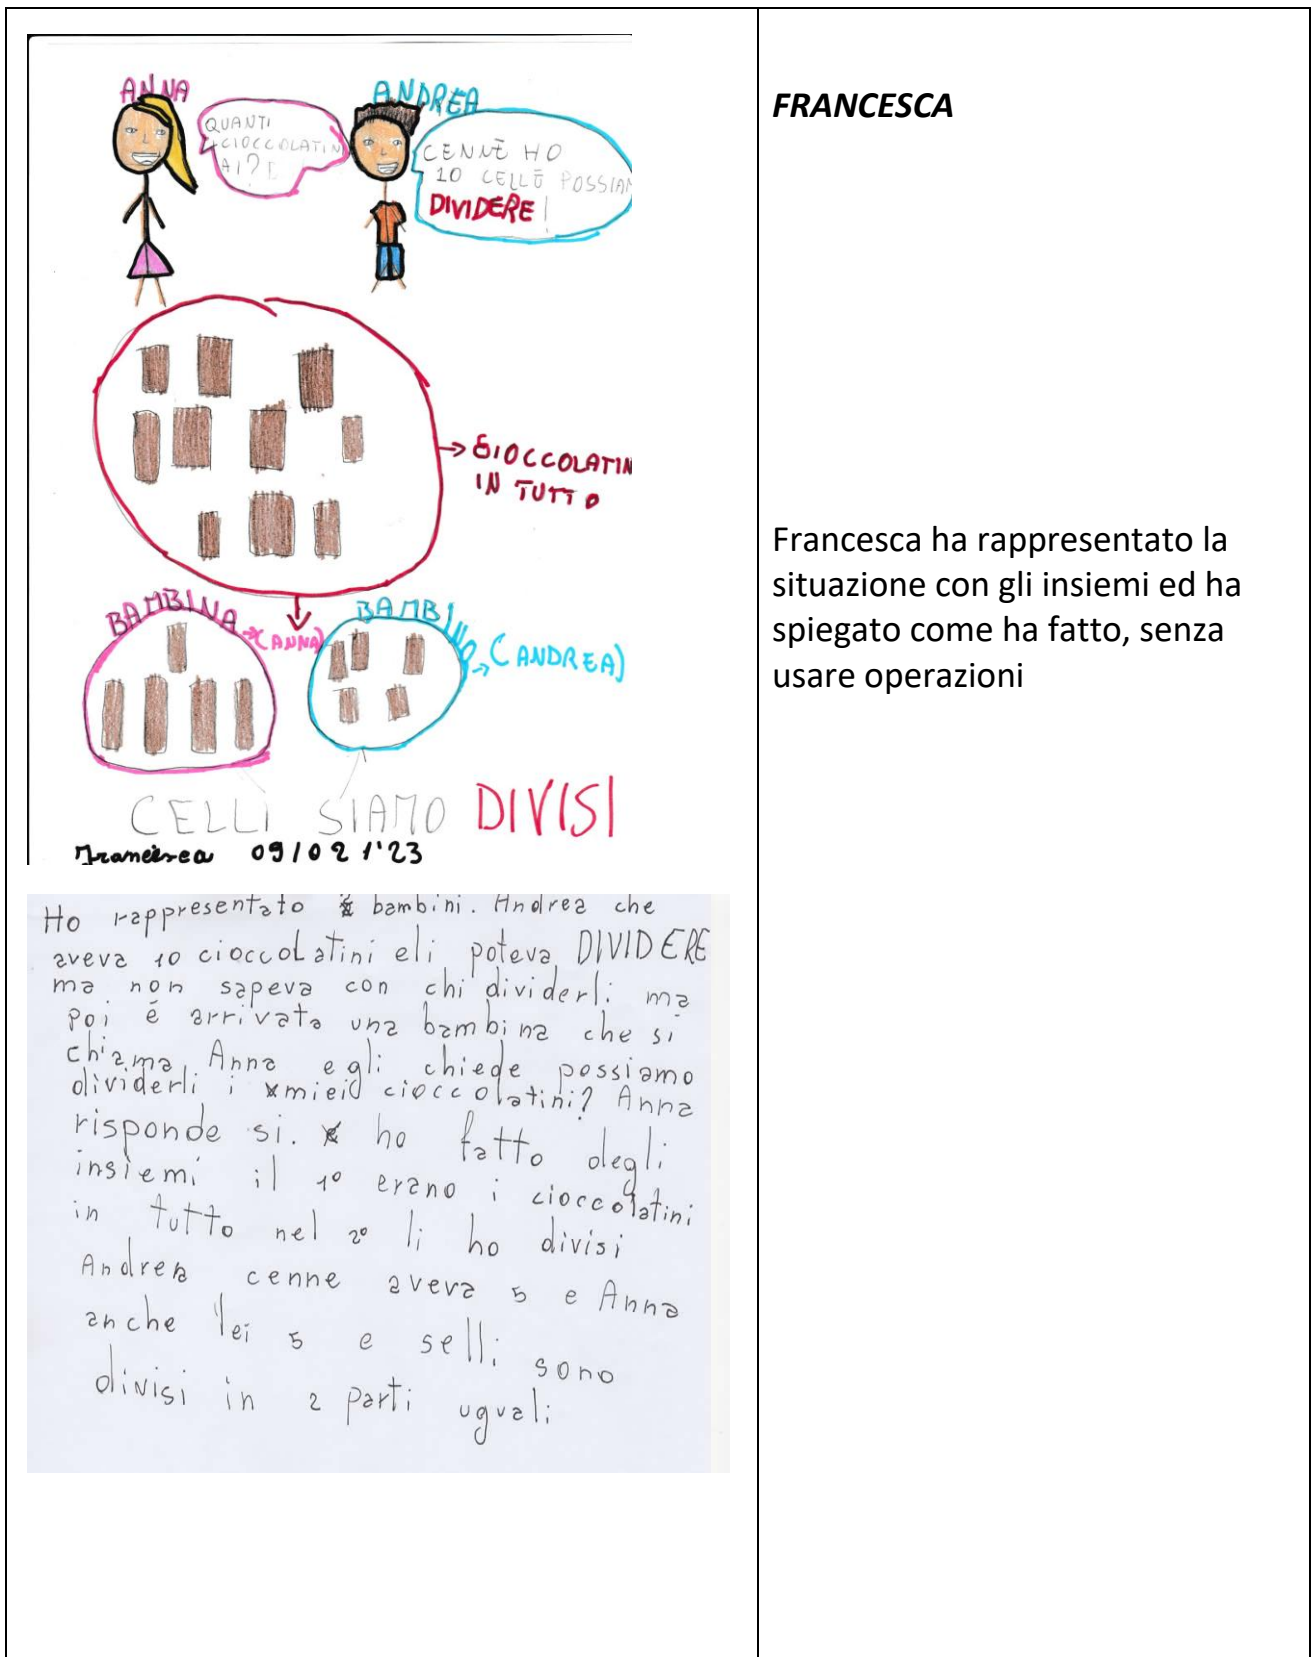 ANNA
QUANTI
CIOCCOLATIN
AI?
ANDREA
CENNĒ HO
10 CELLŌ POSSIAM
DIVIDERE!
CIOCCOLATIN
IN TUTTO
BAMBINA
(ANNA)
BAMBINO
(ANDREA)
CELLI SIAMO DIVISI
Francesca 09/02 1'23
Ho rappresentato bambini. Andrea che
aveva 10 cioccolatini eli poteva DIVIDERE
ma non sapeva con chi dividerli ma
poi é arrivata una bambina che si
chiama Anna egli chiede possiamo
dividerli i miei cioccolatini? Anna
risponde si. ho fatto degli
insiemi il 1° erano i cioccolatini
in tutto nel 2° li ho divisi
Andrea cenne aveva 5 e Anna
anche lei 5 e selli sono
divisi in 2 parti uguali
FRANCESCA
Francesca ha rappresentato la
situazione con gli insiemi ed ha
spiegato come ha fatto, senza
usare operazioni